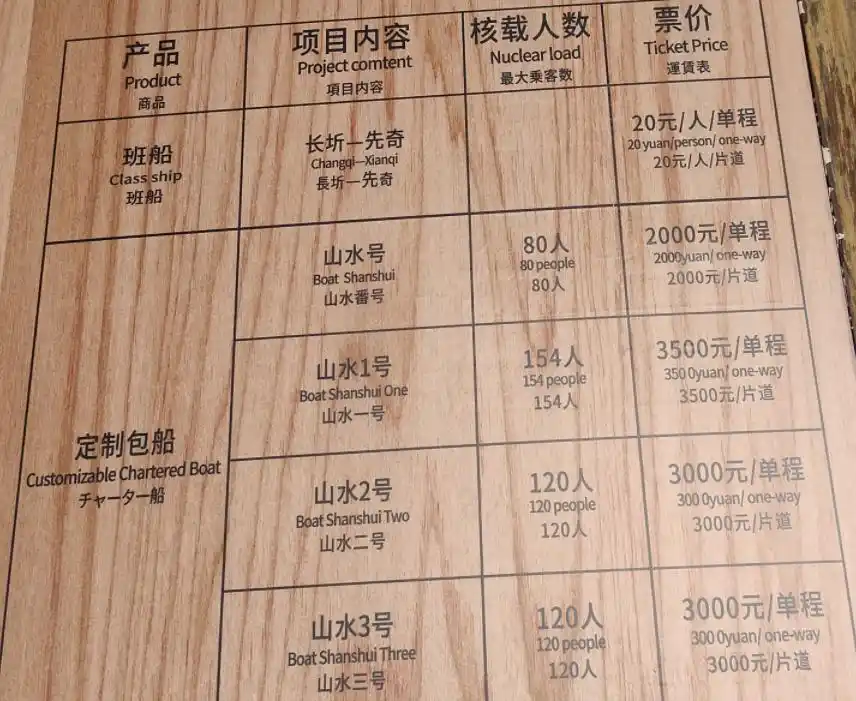 产品
Product
商品
项目内容
Project comtent
項目内容
核载人数
Nuclear load
最大乗客数
票价
Ticket Price
運賃表
班船
Class ship
班船
长圻—先奇
Changqi—Xianqi
長圻—先奇
20元/人/单程
20 yuan/person/ one-way
20元/人/片道
定制包船
Customizable Chartered Boat
チャーター船
山水号
Boat Shanshui
山水番号
80人
80 people
80人
2000元/单程
2000yuan/ one-way
2000元/片道
山水1号
Boat Shanshui One
山水一号
154人
154 people
154人
3500元/单程
350 0yuan/ one-way
3500元/片道
山水2号
Boat Shanshui Two
山水二号
120人
120 people
120人
3000元/单程
300 0yuan/ one-way
3000元/片道
山水3号
Boat Shanshui Three
山水三号
120人
120 people
120人
3000元/单程
300 0yuan/ one-way
3000元/片道